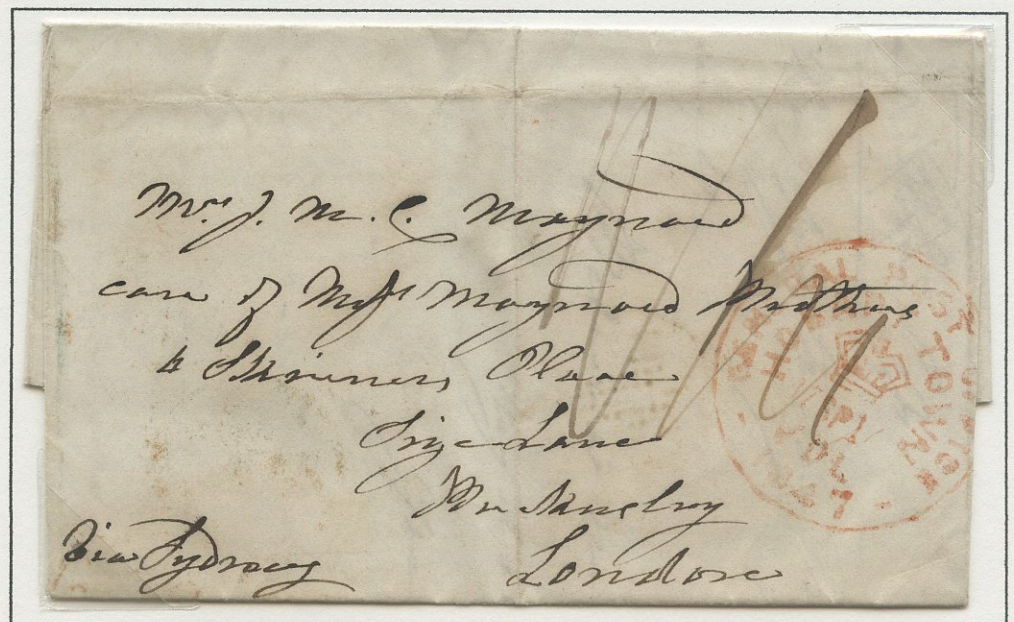 Mrs. J. M. C. Maynard
care of Messrs Maynard Brothers
4 Skinners Place
Size Lane
London
Via Sydney
GENERAL POST OFFICE
HOBART TOWN